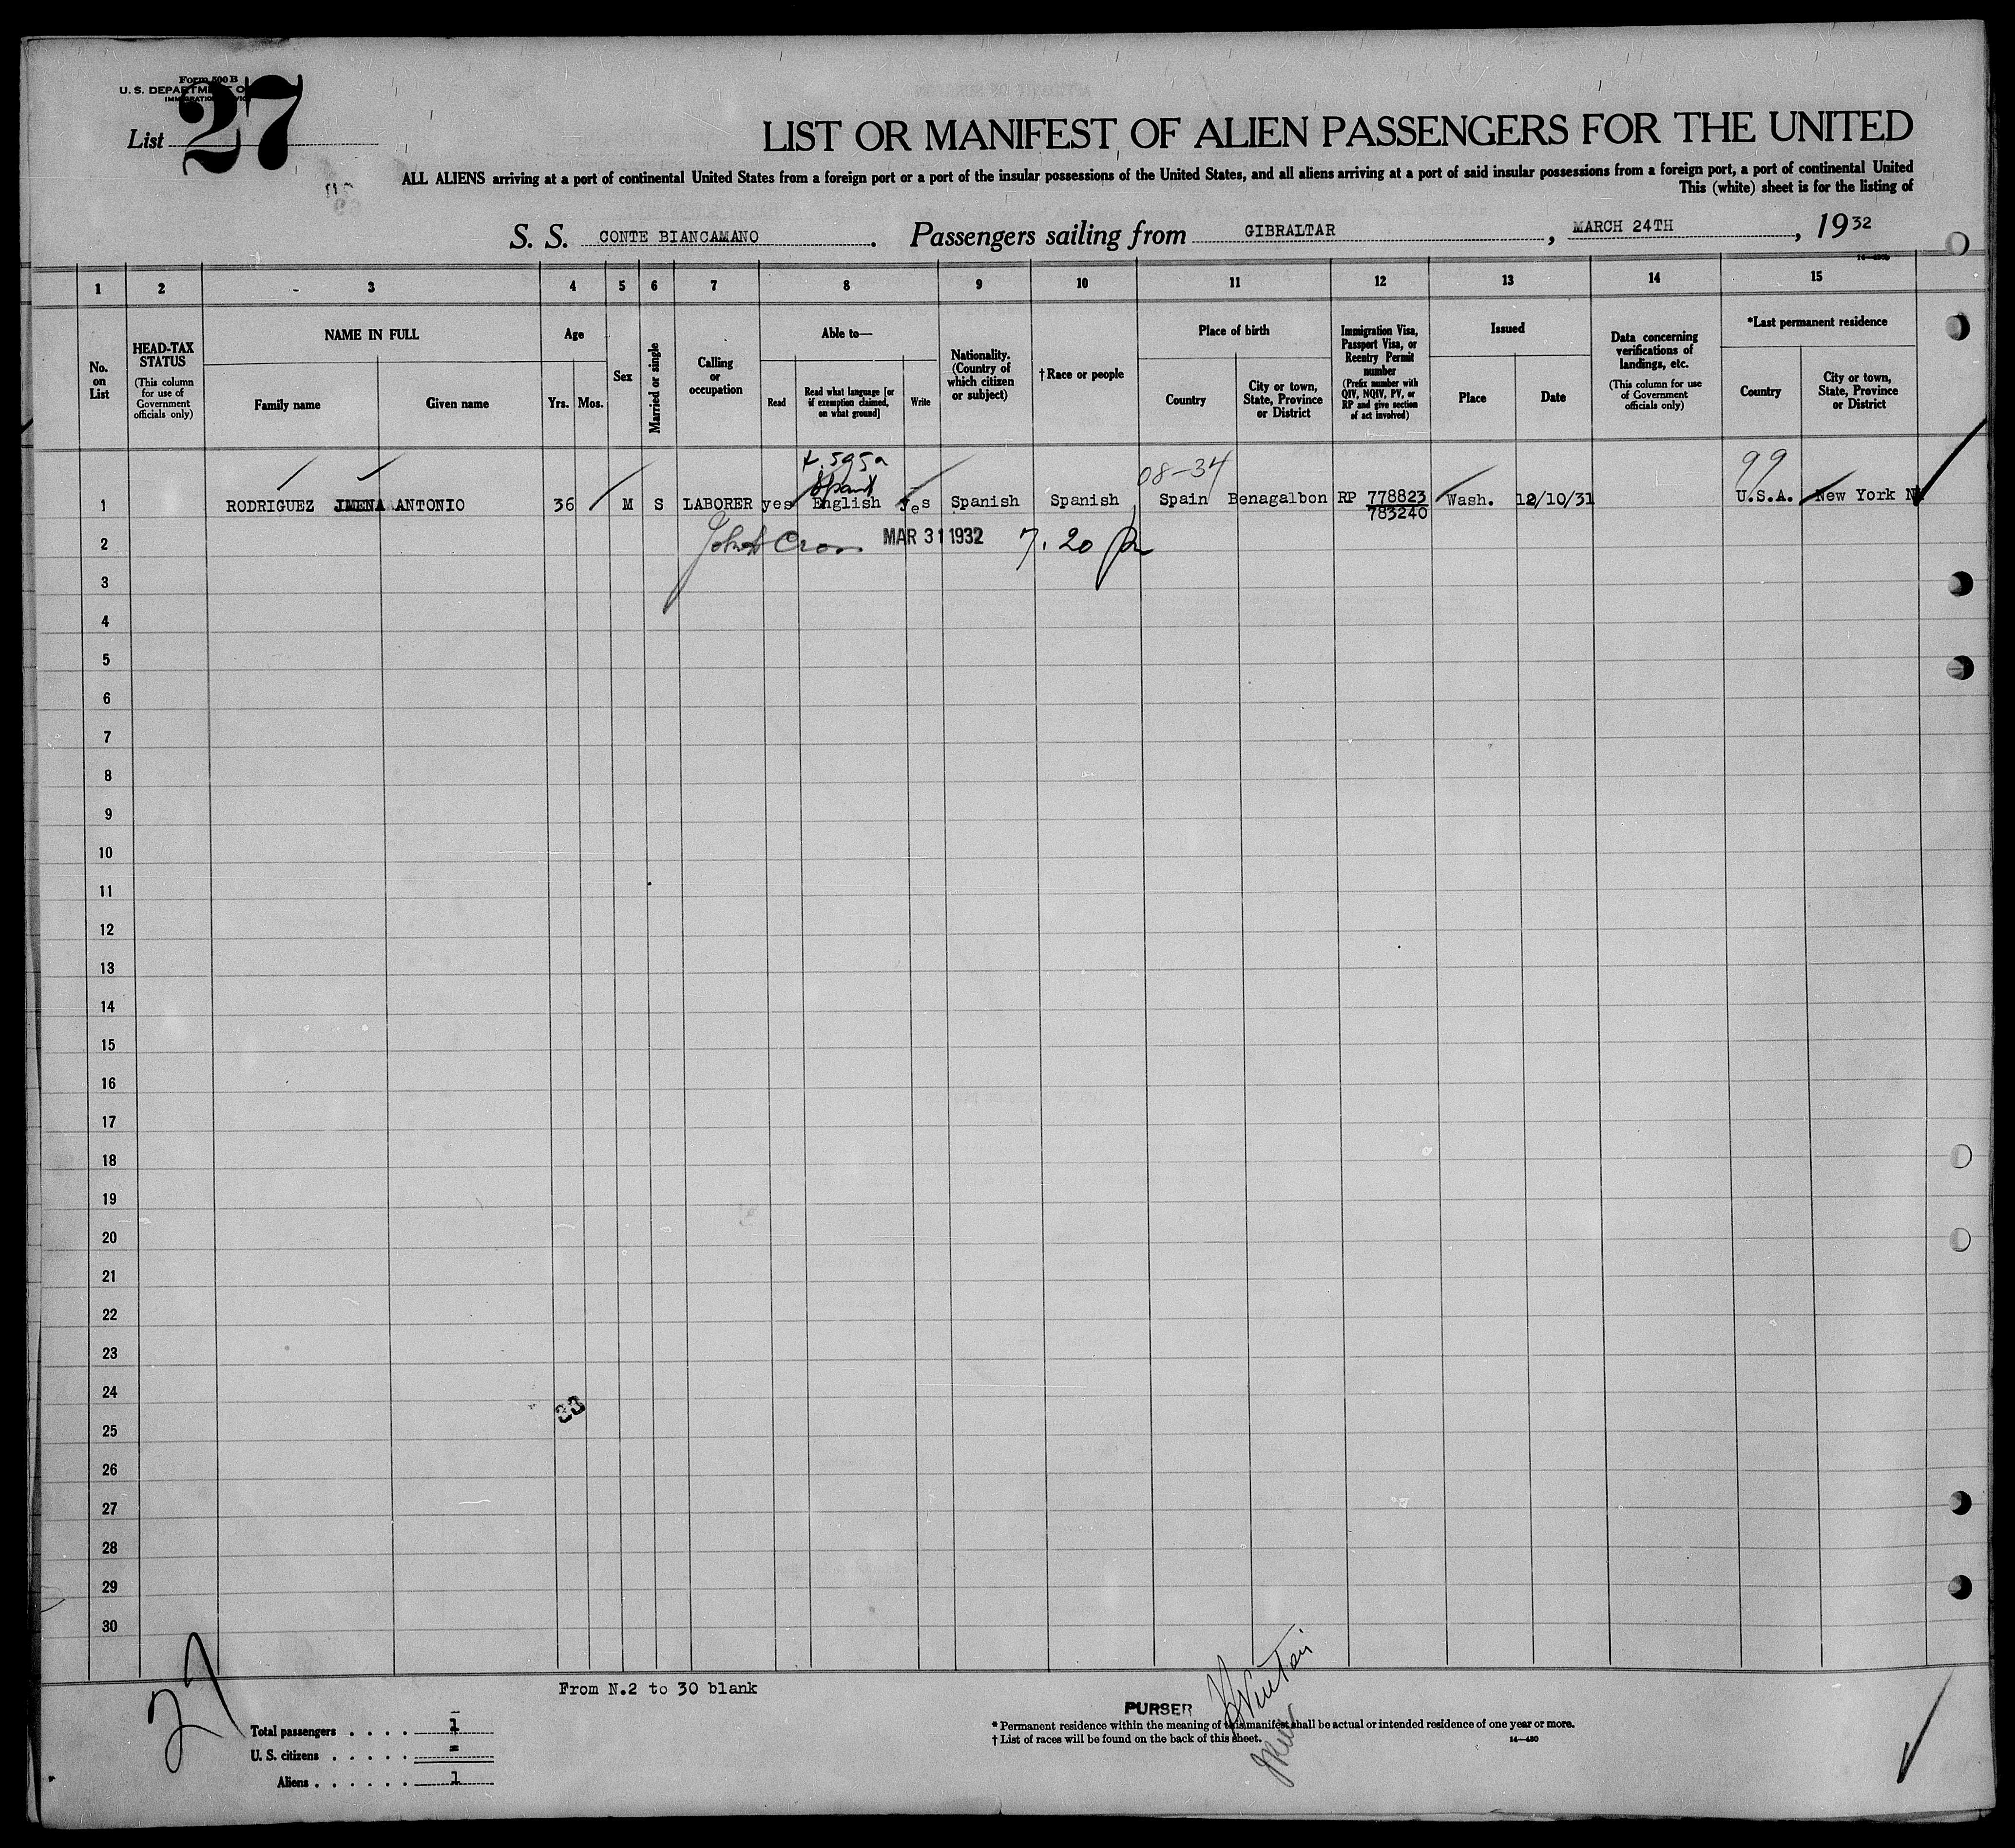 Form 500 B
U. S. DEPARTMENT O
List 27
LIST OR MANIFEST OF ALIEN PASSENGERS FOR THE UNITED
ALL ALIENS arriving at a port of continental United States from a foreign port or a port of the insular possessions of the United States, and all aliens arriving at a port of said insular possessions from a foreign port, a port of continental United
This (white) sheet is for the listing of
S. S. CONTE BIANCAMANO. Passengers sailing from GIBRALTAR, MARCH 24TH, 1932
1 2 3 4 5 6 7 8 9 10 11 12 13 14 15
No. on List
HEAD-TAX STATUS (This column for use of Government officials only)
NAME IN FULL
Family name
Given name
Age
Yrs. Mos.
Sex
Married or single
Calling or occupation
Able to—
Read
Read what language [or if exemption claimed, on what ground]
Write
Nationality. (Country of which citizen or subject)
†Race or people
Place of birth
Country
City or town, State, Province or District
Immigration Visa, Passport Visa, or Reentry Permit number (Prefix number with QIV, NQIV, PV, or RP and give section of act involved)
Issued
Place
Date
Data concerning verifications of landings, etc. (This column for use of Government officials only)
*Last permanent residence
Country
City or town, State, Province or District
08-34 99
1 RODRIGUEZ JMENA ANTONIO 36 M S LABORER yes English yes Spanish Spanish Spain Benagalbon RP 778823 Wash. 12/10/31 U.S.A. New York
783240
2 MAR 31 1932 7.20
3
4
5
6
7
8
9
10
11
12
13
14
15
16
17
18
19
20
21
22
23
24
33
25
26
27
28
29
30
27
From N.2 to 30 blank
Total passengers . . . . 1
U. S. citizens . . . . . =
Aliens . . . . . . 1
PURSER
* Permanent residence within the meaning of this manifest shall be actual or intended residence of one year or more.
† List of races will be found on the back of this sheet.
14—430